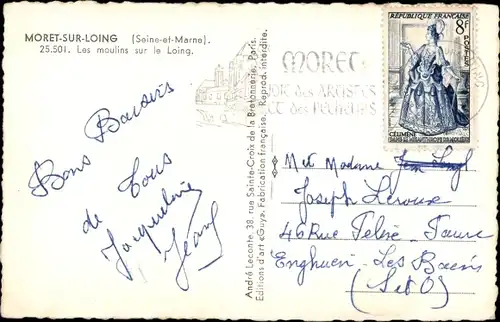 MORET-SUR-LOING (Seine-et-Marne).
25.501. Les moulins sur le Loing.
Bons Baisers
de Tous
Jacqueline
Jean
André Leconte, 38, rue Sainte-Croix de la Bretonnerie, Paris.
Editions d'art «Guy». Fabrication française. Reprod. interdite.
MORET
JOIE des ARTISTES
ET des PÊCHEURS
RÉPUBLIQUE FRANÇAISE
8F
POSTES
CÉLIMÈNE
DANS LE MISANTHROPE DE MOLIÈRE
Mr et Madame Jean
Joseph Leroux
46 Rue Félix-Faure
Enghien Les Bains
(S et O)